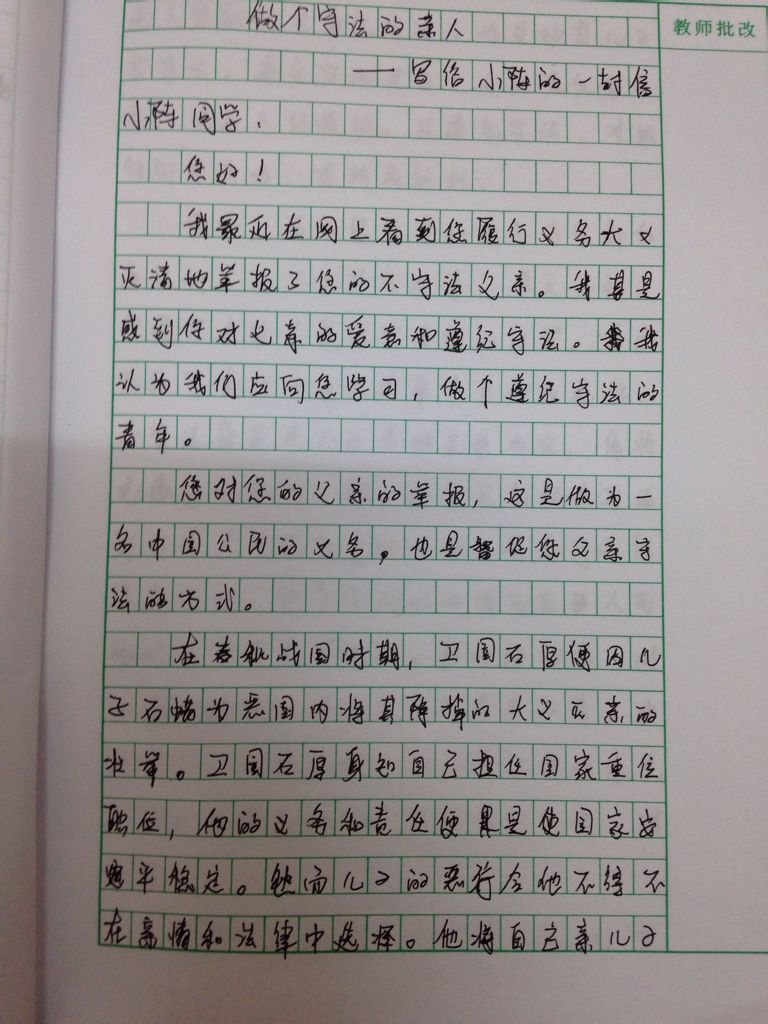 做个守法的亲人
教师批改
——写给小陈的一封信
小陈同学，
您好！
我最近在网上看到您履行义务大义
灭清地举报了您的不守法父亲。我真是
感到你对父亲的爱意和遵纪守法。我
认为我们应向您学习，做个遵纪守法的
青年。
您对您的父亲的举报，这是做为一
名中国公民的义务，也是督促您父亲守
法的方式。
在春秋战国时期，卫国石厚便因儿
子石蜡为恶国内将其除掉的大义灭亲的
壮举。卫国石厚身知自己担任国家重位
职位，他的义务和责任便是使国家安
平稳定。然而儿子的恶行令他不得不
在亲情和法律中选择。他将自己亲儿子